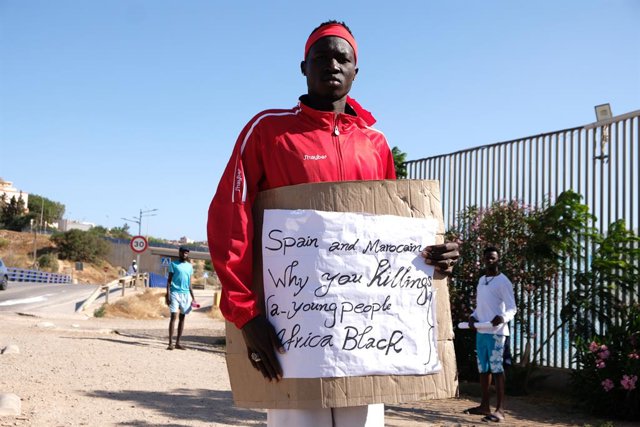 Jhayber
30
Spain and Marocain
Why you killings
(a-young people
Africa Black